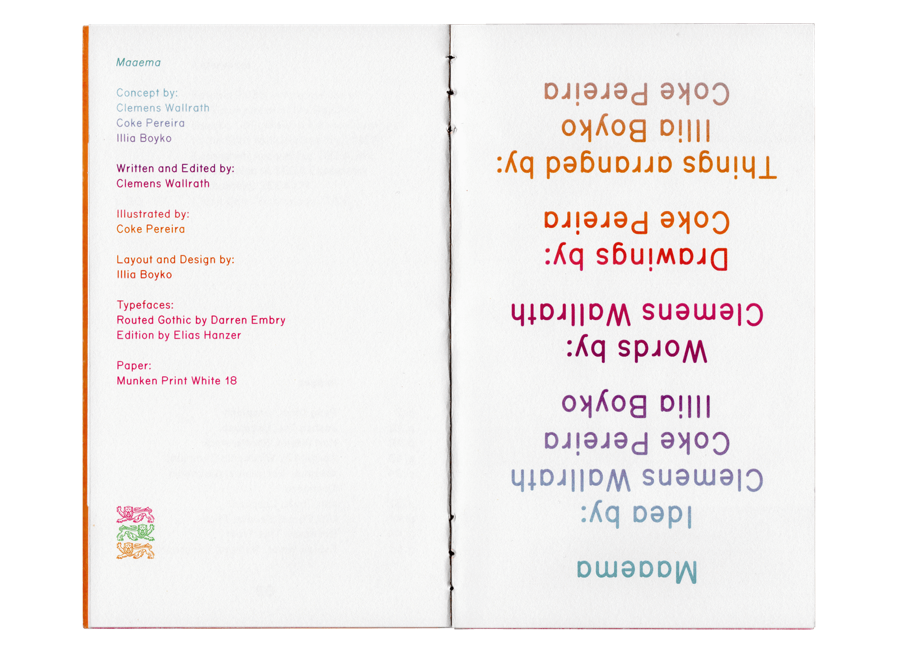 Maaema
Concept by:
Clemens Wallrath
Coke Pereira
Illia Boyko
Written and Edited by:
Clemens Wallrath
Illustrated by:
Coke Pereira
Layout and Design by:
Illia Boyko
Typefaces:
Routed Gothic by Darren Embry
Edition by Elias Hanzer
Paper:
Munken Print White 18
Maaema
Idea by:
Clemens Wallrath
Coke Pereira
Illia Boyko
Words by:
Clemens Wallrath
Drawings by:
Coke Pereira
Things arranged by:
Illia Boyko
Coke Pereira